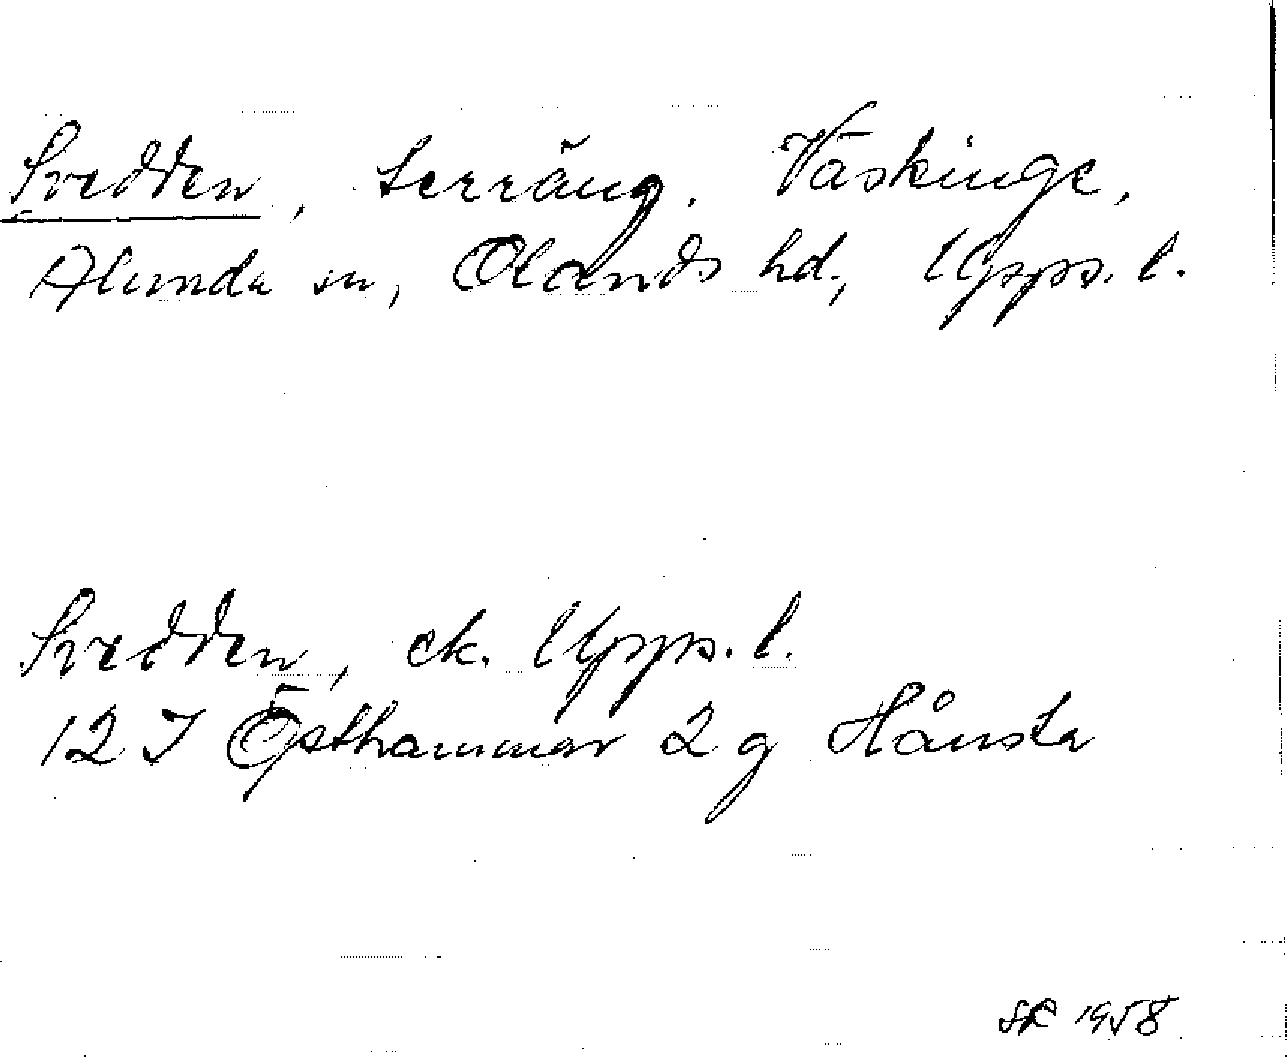 Svedden, terräng. Väskinge,
Alunda sn, Olands hd, Upps. l.
Svedden, ek. Upps. l.
12 I Östhammar 2 g Hånsta
SR 1958